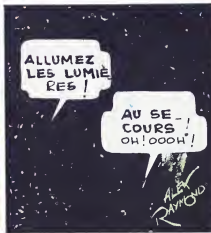 ALLUMEZ
LES LUMIÈ
RES!
AU SE_
COURS
OH! OOOH!
ALEX
RAYMOND